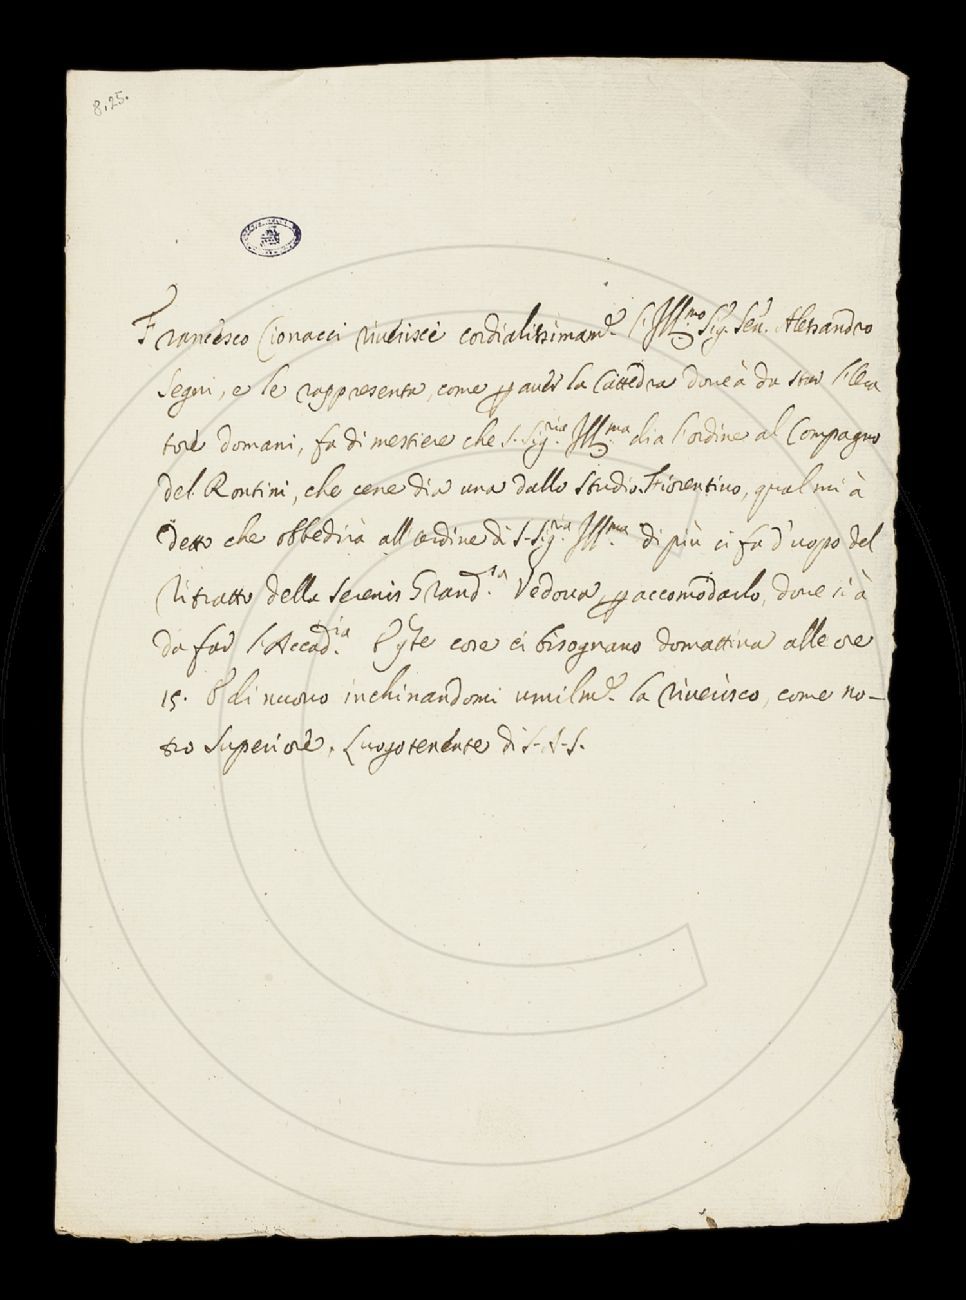 8.25.
Francesco Cionacci riverisce cordialissimam.te l'Ill.mo Sig.r Sen.r Alessandro
Segni, e le rappresenta, come p aver la Cattedra dove à da star l'
tore domani, fa di mestiere che S. Sig.ria Ill.ma dia l'ordine al Compagno
del Rontini, che cene dia una dallo Studio Fiorentino, qual mi à
detto che obbedirà all'ordine di S. Sig.ria Ill.ma di più ci fa d'uopo del
Ritratto della Sereniss Grand.sa Vedova p accomodarlo, dove si à
da far l'Accad.ia E q̃ste cose ci bisognano domattina alle ore
15. E di nuovo inchinandomi umilm.te la riverisco, come no-
stro Superiore, Luogotenente di S.A.S.